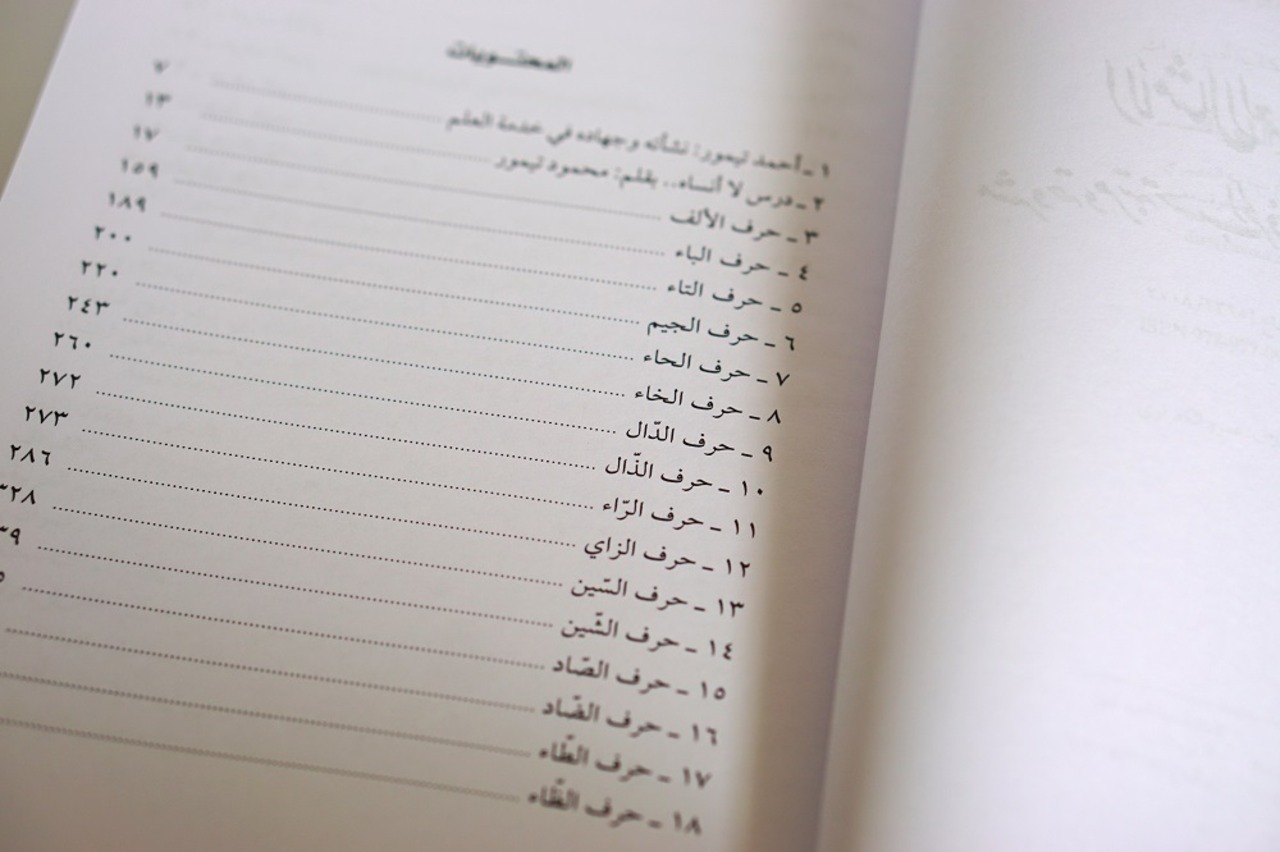 المحتويات
١ ـ أحمد تيمور: نشأته وجهاده في خدمة العلم ........ ٧
٢ ـ درس لا أنساه.. بقلم: محمود تيمور ........ ١٣
٣ ـ حرف الألف ........ ١٧
٤ ـ حرف الباء ........ ١٥٩
٥ ـ حرف التاء ........ ١٨٩
٦ ـ حرف الجيم ........ ٢٠٠
٧ ـ حرف الحاء ........ ٢٢٠
٨ ـ حرف الخاء ........ ٢٤٣
٩ ـ حرف الدّال ........ ٢٦٠
١٠ ـ حرف الذّال ........ ٢٧٢
١١ ـ حرف الرّاء ........ ٢٧٣
١٢ ـ حرف الزاي ........ ٢٨٦
١٣ ـ حرف السّين ........
١٤ ـ حرف الشّين ........
١٥ ـ حرف الصّاد ........
١٦ ـ حرف الضّاد ........
١٧ ـ حرف الطّاء ........
١٨ ـ حرف الظّاء ........